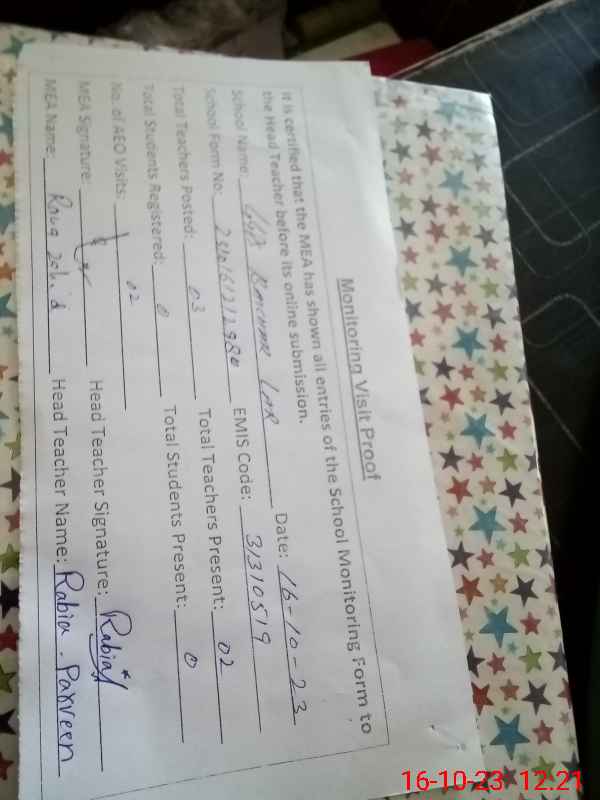 Monitoring Visit Proof
It is certified that the MEA has shown all entries of the School Monitoring Form to
the Head Teacher before its online submission.
School Name: Date: 16-10-23
School Form No: EMIS Code: 31310519
Total Teachers Posted: 03 Total Teachers Present: 02
Total Students Registered: 0 Total Students Present: 0
No. of AEO Visits: 02
MEA Signature: Head Teacher Signature: Rabia
MEA Name: Head Teacher Name: Rabia . Parveen
16-10-23 12:21